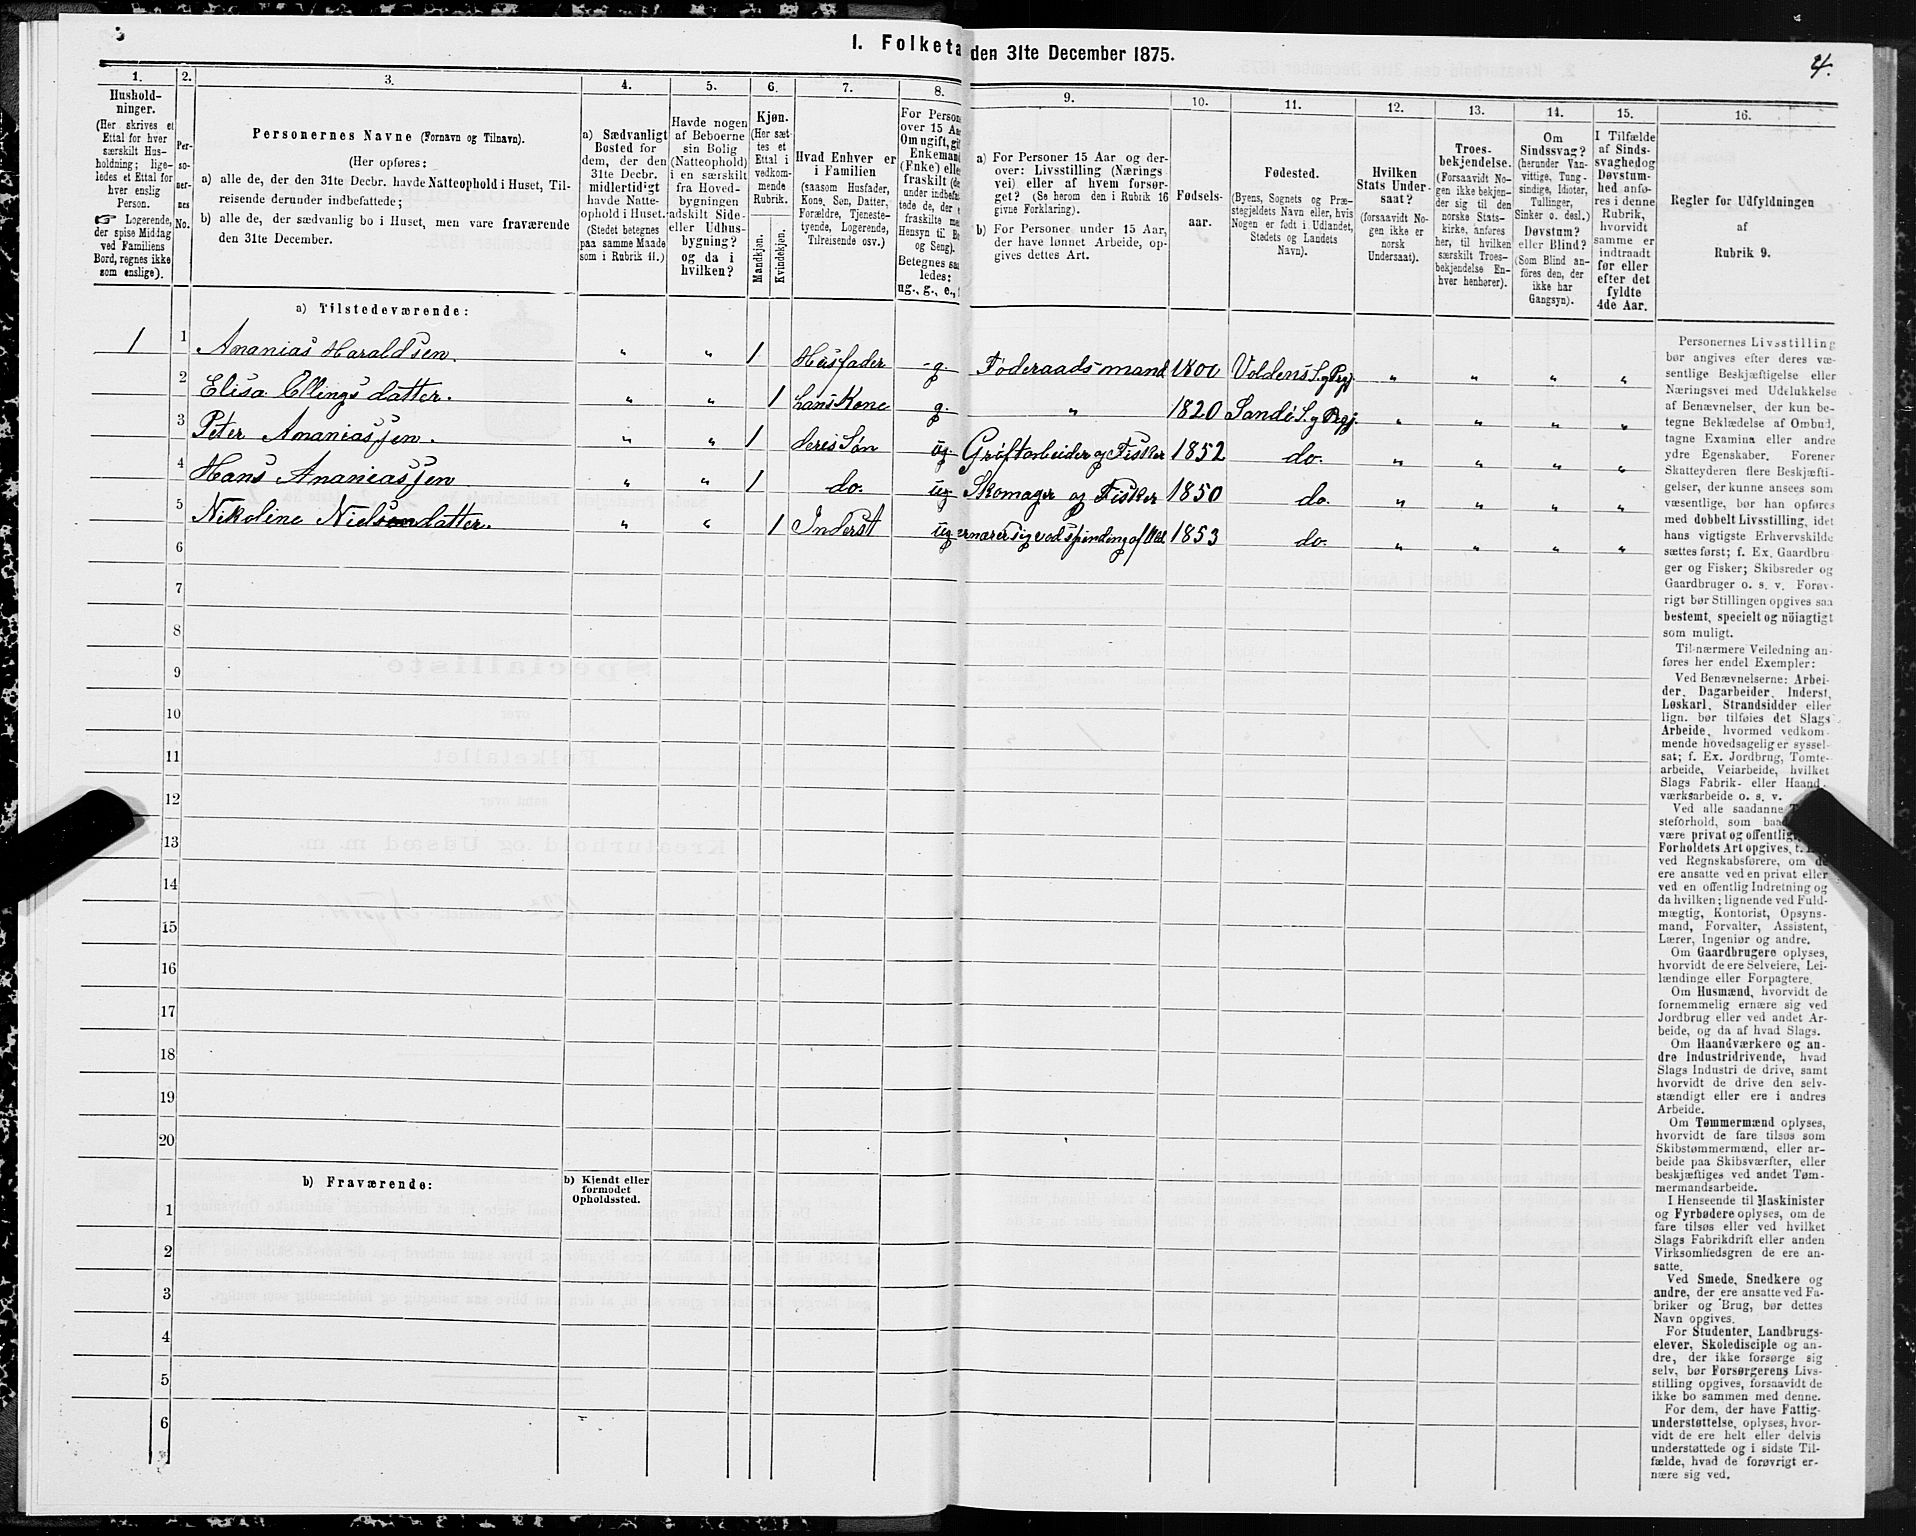 1. Folketa den 31te December 1875.
4.
1.
Hushold-
ninger.
(Her skrives et
Ettal for hver
særskilt Hus-
holdning; lige-
ledes et Ettal for
hver enslig
Person.
☞ Logerende,
der spise Middag
ved Familiens
Bord, regnes ikke
som enslige).
2.
Per-
so-
ner-
nes
No.
3.
Personernes Navne (Fornavn og Tilnavn).
(Her opføres:
a) alle de, der den 31te Decbr. havde Natteophold i Huset, Til-
reisende derunder indbefattede;
b) alle de, der sædvanlig bo i Huset, men vare fraværende
den 31te December.
4.
a) Sædvanligt
Bosted for
dem, der den
31te Decbr.
midlertidigt
havde Natte-
ophold i Huset.
(Stedet betegnes
paa samme Maade
som i Rubrik 11.)
5.
Havde nogen
af Beboerne
sin Bolig
(Natteophold)
i en særskilt
fra Hoved-
bygningen
adskilt Side-
eller Udhus-
bygning?
og da i
hvilken?
6.
Kjøn.
(Her sæt-
tes et
Ettal i
vedkom-
mende
Rubrik.
Mandkjøn.
Kvindekjøn.
7.
Hvad Enhver er
i Familien
(saasom Husfader,
Kone, Søn, Datter,
Forældre, Tjeneste-
tyende, Logerende,
Tilreisende osv.)
8.
For Person
over 15 Aa
Om ugift, gif
Enkemand
(Enke) elle
fraskilt (de
under indbefat
tede de, der e
fraskilte me
Hensyn til Bo
og Seng).
Betegnes saa
ledes:
ug., g., e.,
9.
a) For Personer 15 Aar og der-
over: Livsstilling (Nærings
vei) eller af hvem forsør-
get? (Se herom den i Rubrik 16
givne Forklaring).
b) For Personer under 15 Aar,
der have lønnet Arbeide, op-
gives dettes Art.
10.
Fødsels-
aar.
11.
Fødested.
(Byens, Sognets og Præ-
stegjeldets Navn eller, hvis
Nogen er født i Udlandet,
Stedets og Landets
Navn).
12.
Hvilken
Stats Under-
saat?
(forsaavidt No-
gen ikke er
norsk
Undersaat).
13.
Troes-
bekjendelse.
(Forsaavidt No-
gen ikke bekjen-
der sig til den
norske Stats-
kirke, anføres
her, til hvilken
særskilt Troes-
bekjendelse En-
hver henhører).
14.
Om
Sindssvag?
(herunder Van-
vittige, Tung-
sindige, Idioter,
Tullinger,
Sinker o. desl.)
Døvstum?
eller Blind?
(Som Blind an-
føres den, der
ikke har
Gangsyn).
15.
I Tilfælde
af Sinds-
svaghed og
Døvstum-
hed anfø-
res i denne
Rubrik,
hvorvidt
samme er
indtraadt
før eller
efter det
fyldte
4de Aar.
16.
Regler for Udfyldningen
af
Rubrik 9.
a) Tilstedeværende:
1 1 Ananias Haraldsen. „ „ 1 Husfader g. Føderaadsmand 1800 Voldens S. og Prgj. „ „ „ „
2 Elisa Ellingsdatter. „ „ 1 hans Kone g. „ 1820 Sandø S. og Prgj. „ „ „ „
3 Peter Ananiassen. „ „ 1 deres Søn ug. Grøftarbeider og Fisker 1852 do. „ „ „ „
4 Hans Ananiassen „ „ 1 do. ug. Skomager og Fisker 1850 do. „ „ „ „
5 Nikoline Nielsendatter. „ „ 1 Inderst ug. ernærer sig ved spinding af Uld 1853 do. „ „ „ „
6
7
8
9
10
11
12
13
14
15
16
17
18
19
20
b) Fraværende:
b) Kjendt eller
formodet
Opholdssted.
1
2
3
4
5
6
Personernes Livsstilling
bør angives efter deres væ-
sentlige Beskjæftigelse eller
Næringsvei med Udelukkelse
af Benævnelser, der kun be-
tegne Beklædelse af Ombud,
tagne Examina eller andre
ydre Egenskaber. Forener
Skatteyderen flere Beskjæfti-
gelser, der kunne ansees som
væsentlige, bør han opføres
med dobbelt Livsstilling, idet
hans vigtigste Erhvervskilde
sættes først; f. Ex. Gaardbru-
ger og Fisker; Skibsreder og
Gaardbruger o. s. v. Forøv-
rigt bør Stillingen opgives saa
bestemt, specielt og nöiagtigt
som muligt.
Til nærmere Veiledning an-
føres her endel Exempler:
Ved Benævnelserne: Arbei-
der, Dagarbeider, Inderst,
Løskarl, Strandsidder eller
lign. bør tilføies det Slags
Arbeide, hvormed vedkom-
mende hovedsagelig er syssel-
sat; f. Ex. Jordbrug, Tomte-
arbeide, Veiarbeide, hvilket
Slags Fabrik- eller Haand-
værksarbeide o. s. v.
Ved alle saadanne T
steforhold, som baa
være privat og offentlig
Forholdets Art opgives, t.
ved Regnskabsførere, om de
ere ansatte ved en privat eller
ved en offentlig Indretning og
da hvilken; lignende ved Fuld-
mægtig, Kontorist, Opsyns-
mand, Forvalter, Assistent,
Lærer, Ingeniør og andre.
Om Gaardbrugere oplyses,
hvorvidt de ere Selveiere, Lei-
lændinge eller Forpagtere.
Om Husmænd, hvorvidt de
fornemmelig ernære sig ved
Jordbrug eller ved andet Ar-
beide, og da af hvad Slags.
Om Haandværkere og an-
dre Industridrivende, hvad
Slags Industri de drive, samt
hvorvidt de drive den selv-
stændigt eller ere i andres
Arbeide.
Om Tømmermænd oplyses,
hvorvidt de fare tilsøs som
Skibstømmermænd, eller ar-
beide paa Skibsværfter, eller
beskjæftiges ved andet Tøm-
mermandsarbeide.
I Henseende til Maskinister
og Fyrbødere oplyses, om de
fare tilsøs eller ved hvilket
Slags Fabrikdrift eller anden
Virksomhedsgren de ere an-
satte.
Ved Smede, Snedkere og
andre, der ere ansatte ved Fa-
briker og Brug, bør dettes
Navn opgives.
For Studenter, Landbrugs-
elever, Skoledisciple og an-
dre, der ikke forsørge sig
selv, bør Forsørgerens Livs-
stilling opgives, forsaavidt de
ikke bo sammen med denne.
For dem, der have Fattig-
understøttelse, oplyses, hvor-
vidt de ere helt eller delvis
understøttede og i sidste Til-
fælde, hvad de forøvrigt er-
nære sig ved.